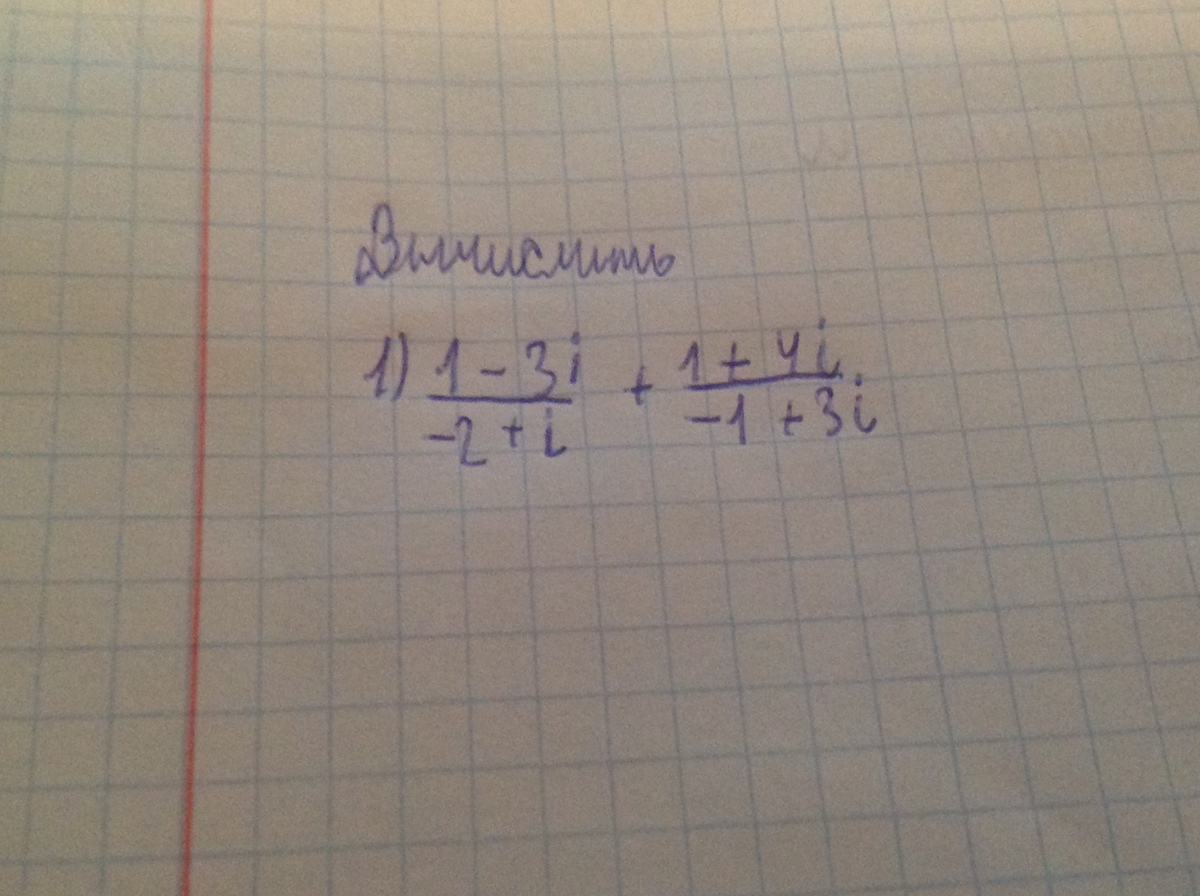 Вычислить
1) 1 - 3i / -2 + i + 1 + 4i / -1 + 3i